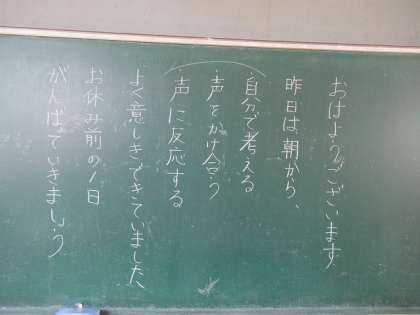 おはようございます
昨日は、朝から、
・自分で考える
・声をかけ合う
・声に反応する
よく意しきできていました、
お休み前の1日
がんばっていきましょう